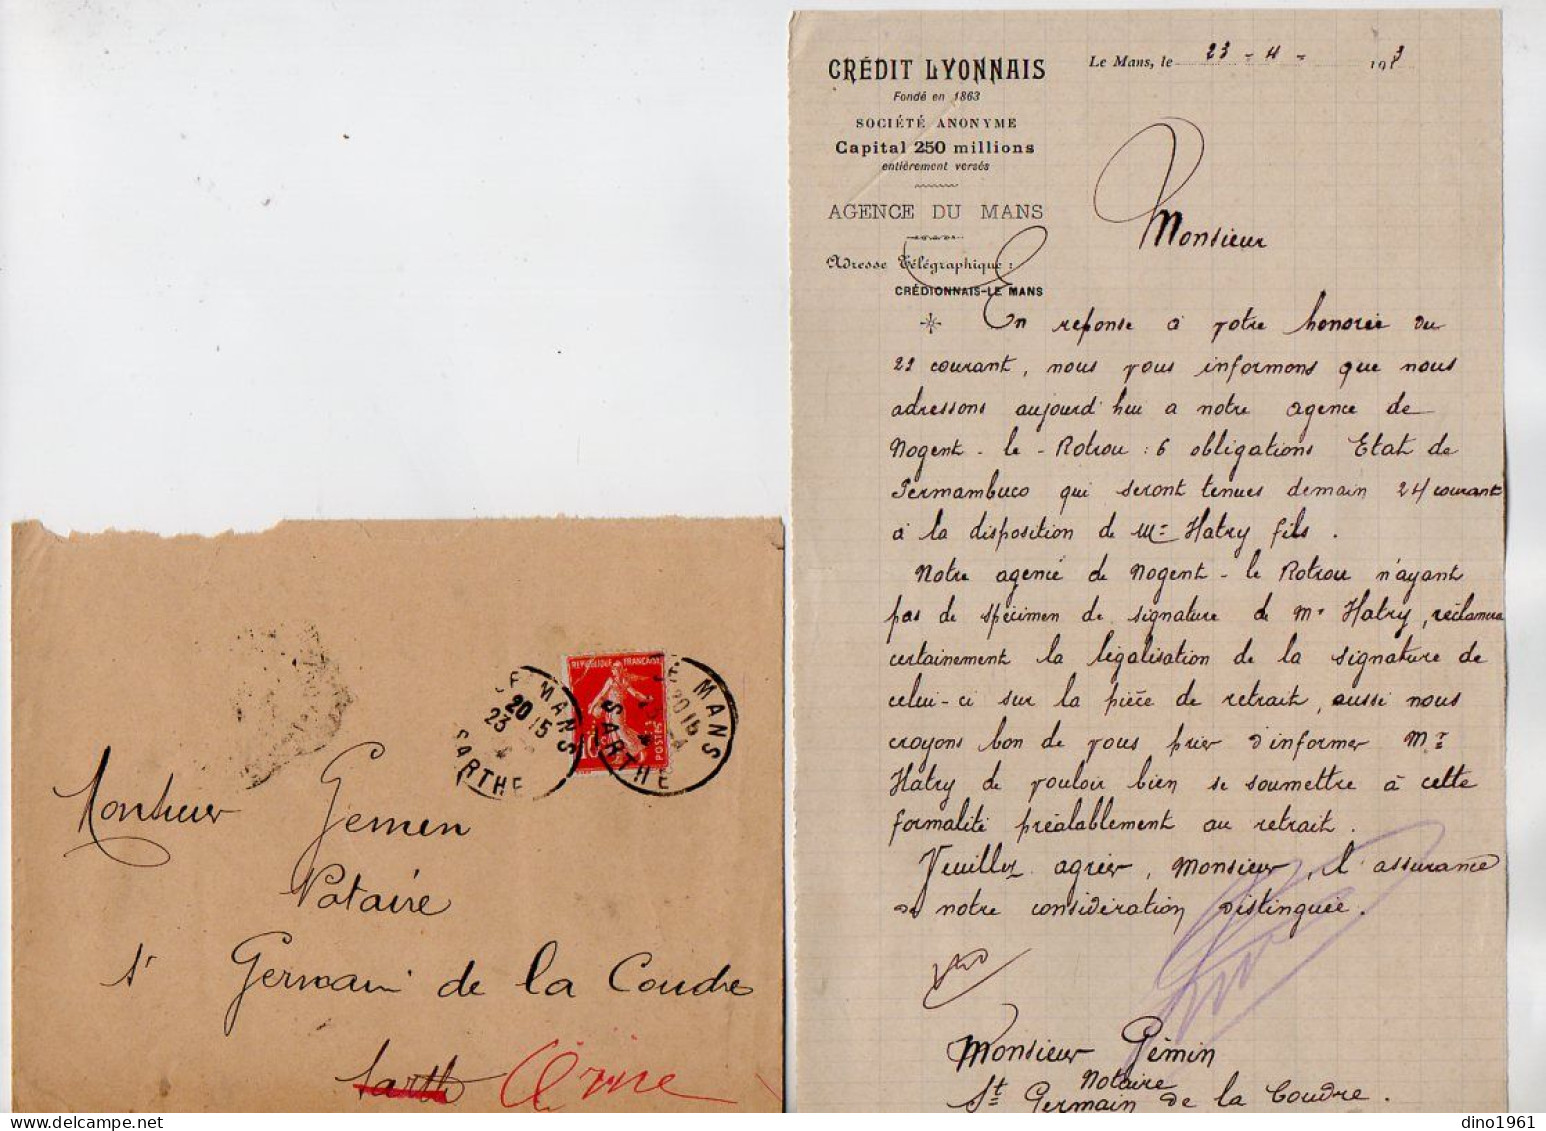 CRÉDIT LYONNAIS
Fondé en 1863
SOCIÉTÉ ANONYME
Capital 250 millions
entièrement versés
AGENCE DU MANS
Adresse Télégraphique :
CRÉDIONNAIS-LE MANS
Le Mans, le 23 - 4 - 1913
Monsieur
En reponse a votre honorée du
21 courant, nous vous informons que nous
adressons aujourd'hui a notre agence de
Nogent-le-Rotrou : 6 obligations Etat de
Pernambuco qui seront tenues demain 24 courant
à la disposition de Mr Hatry fils.
Notre agence de Nogent-le Rotrou n'ayant
pas de spécimen de signature de Mr Hatry, réclamera
certainement la légalisation de la signature de
celui-ci sur la pièce de retrait, aussi nous
croyons bon de vous prier d'informer Mr
Hatry de vouloir bien se soumettre à cette
formalité préalablement au retrait.
Veuillez agréer, Monsieur, l'assurance
de notre considération distinguée.
Monsieur Gémin
Notaire
St Germain de la Coudre.
REPUBLIQUE FRANCAISE
10
POSTES
LE MANS
20 15
23 - 4
SARTHE
LE MANS
20 15
SARTHE
Monsieur Gemen
Notaire
St Germain de la Coudre
Sarthe Orne
dino1961